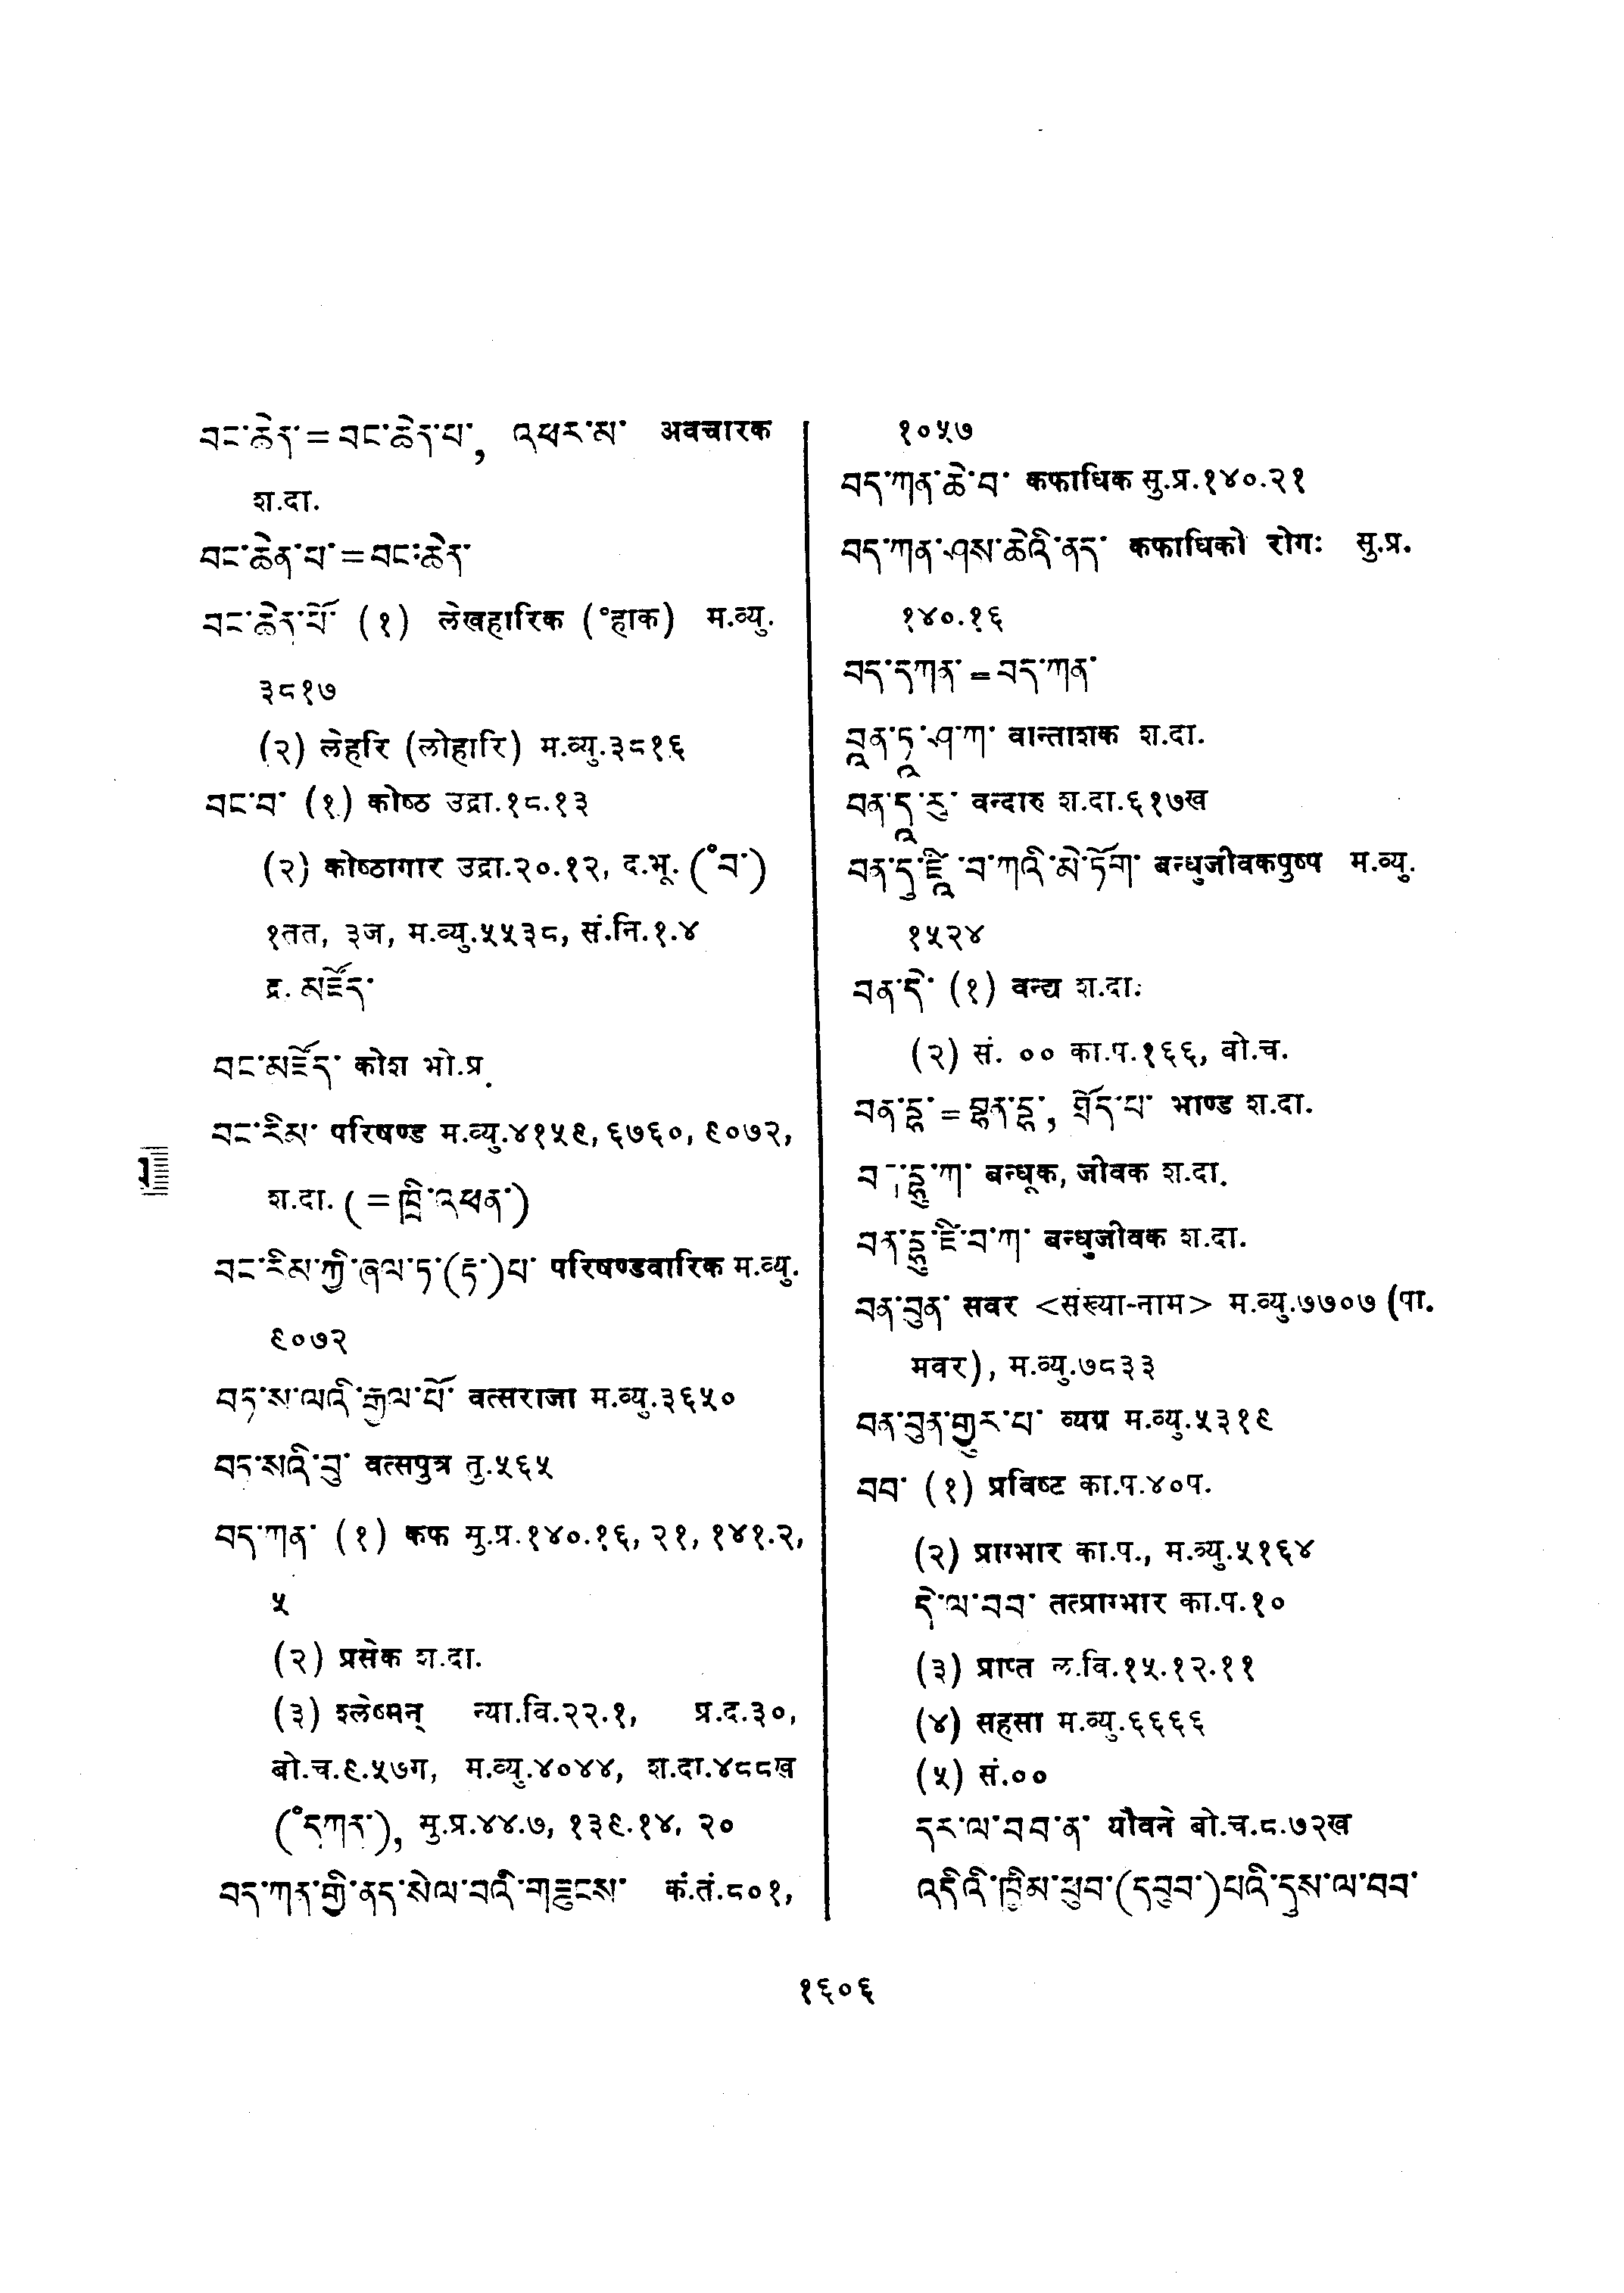 བང་ཆེན་ = བང་ཆེན་པ་, འཕར་མ་ अवचारक
श.दा.
བང་ཆེན་པ་ = བང་ཆེན་
བང་ཆེན་པོ་ (१) लेखहारिक (°हाक) म.व्यु.
३८१७
(२) लेहरि (लोहारि) म.व्यु.३८१६
བང་བ་ (१) कोष्ठ उद्रा.१८.१३
(२) कोष्ठागार उद्रा.२०.१२, द.भू. (°བ་)
१तत, ३ज, म.व्यु.५५३८, सं.नि.१.४
द्र. མཛོད་
བང་མཛོད་ कोश भो.प्र.
བང་རིམ་ परिषण्ड म.व्यु.४१५९, ६७६०, ९०७२,
श.दा. (= ཁྲི་འཕན་)
བང་རིམ་ཀྱི་ཞལ་ཏ་(ཏ་)པ་ परिषण्डवारिक म.व्यु.
९०७२
བད་ས་ལའི་རྒྱལ་པོ་ वत्सराजा म.व्यु.३६५०
བད་སའི་བུ་ वत्सपुत्र तु.५६५
བད་ཀན་ (१) कफ सु.प्र.१४०.१६, २१, १४१.२,
५
(२) प्रसेक श.दा.
(३) श्लेष्मन् न्या.वि.२२.१, प्र.द.३०,
बो.च.९.५७ग, म.व्यु.४०४४, श.दा.४८८ख
(°དཀན་), सु.प्र.४४.७, १३९.१४, २०
བད་ཀན་གྱི་ནད་སེལ་བའི་གཟུངས་ कं.तं.८०१,
१०५७
བད་ཀན་ཆེ་བ་ कफाधिक सु.प्र.१४०.२१
བད་ཀན་ཤས་ཆེའི་ནད་ कफाधिको रोगः सु.प्र.
१४०.१६
བད་དཀན་ = བད་ཀན་
བཱན་ཏཱ་ཤ་ཀ་ वान्ताशक श.दा.
བན་དཱ་རུ་ वन्दारु श.दा.६१७ख
བན་དུ་ཛཱི་བ་ཀའི་མེ་ཏོག་ बन्धुजीवकपुष्प म.व्यु.
१५२४
བན་དེ་ (१) वन्द्य श.दा.
(२) सं. ०० का.प.१६६, बो.च.
བན་དྷ་ = བྷན་དྷ་, གྲོད་པ་ भाण्ड श.दा.
बन्धूक, जीवक श.दा.
བན་དྷུ་ཛི་བ་ཀ་ बन्धुजीवक श.दा.
བན་བུན་ सवर <संख्या-नाम> म.व्यु.७७०७ (पा.
मवर), म.व्यु.७८३३
བན་བུན་གྱུར་པ་ व्यग्र म.व्यु.५३१९
བབ་ (१) प्रविष्ट का.प.४०प.
(२) प्राग्भार का.प., म.व्यु.५१६४
དེ་ལ་བབ་ तत्प्राग्भार का.प.१०
(३) प्राप्त ल.वि.१५.१२.११
(४) सहसा म.व्यु.६६६६
(५) सं.००
དར་ལ་བབ་ན་ यौवने बो.च.८.७२ख
འདིའི་ཁྲིམ་ཕུབ་(དབུབ་)པའི་དུས་ལ་བབ་
१६०६